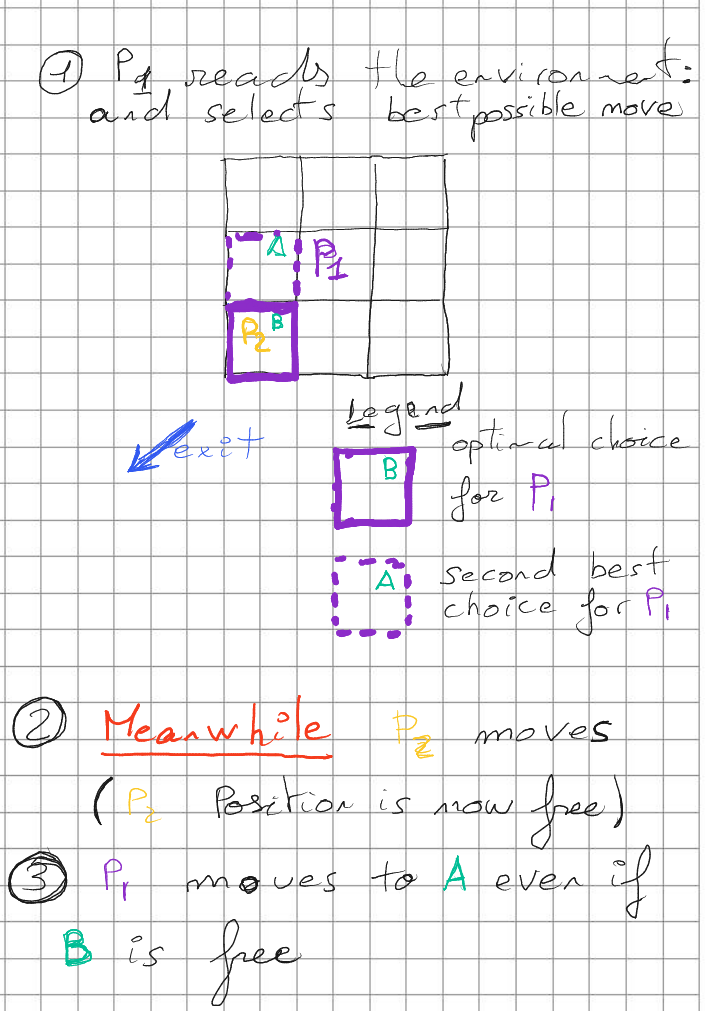 1 P1 reads the environment:
and selects best possible move
A P1
P2 B
Legend
exit
B optimal choice
for P1
A second best
choice for P1
2 Meanwhile P2 moves
(P2 Position is now free)
3 P1 moves to A even if
B is free